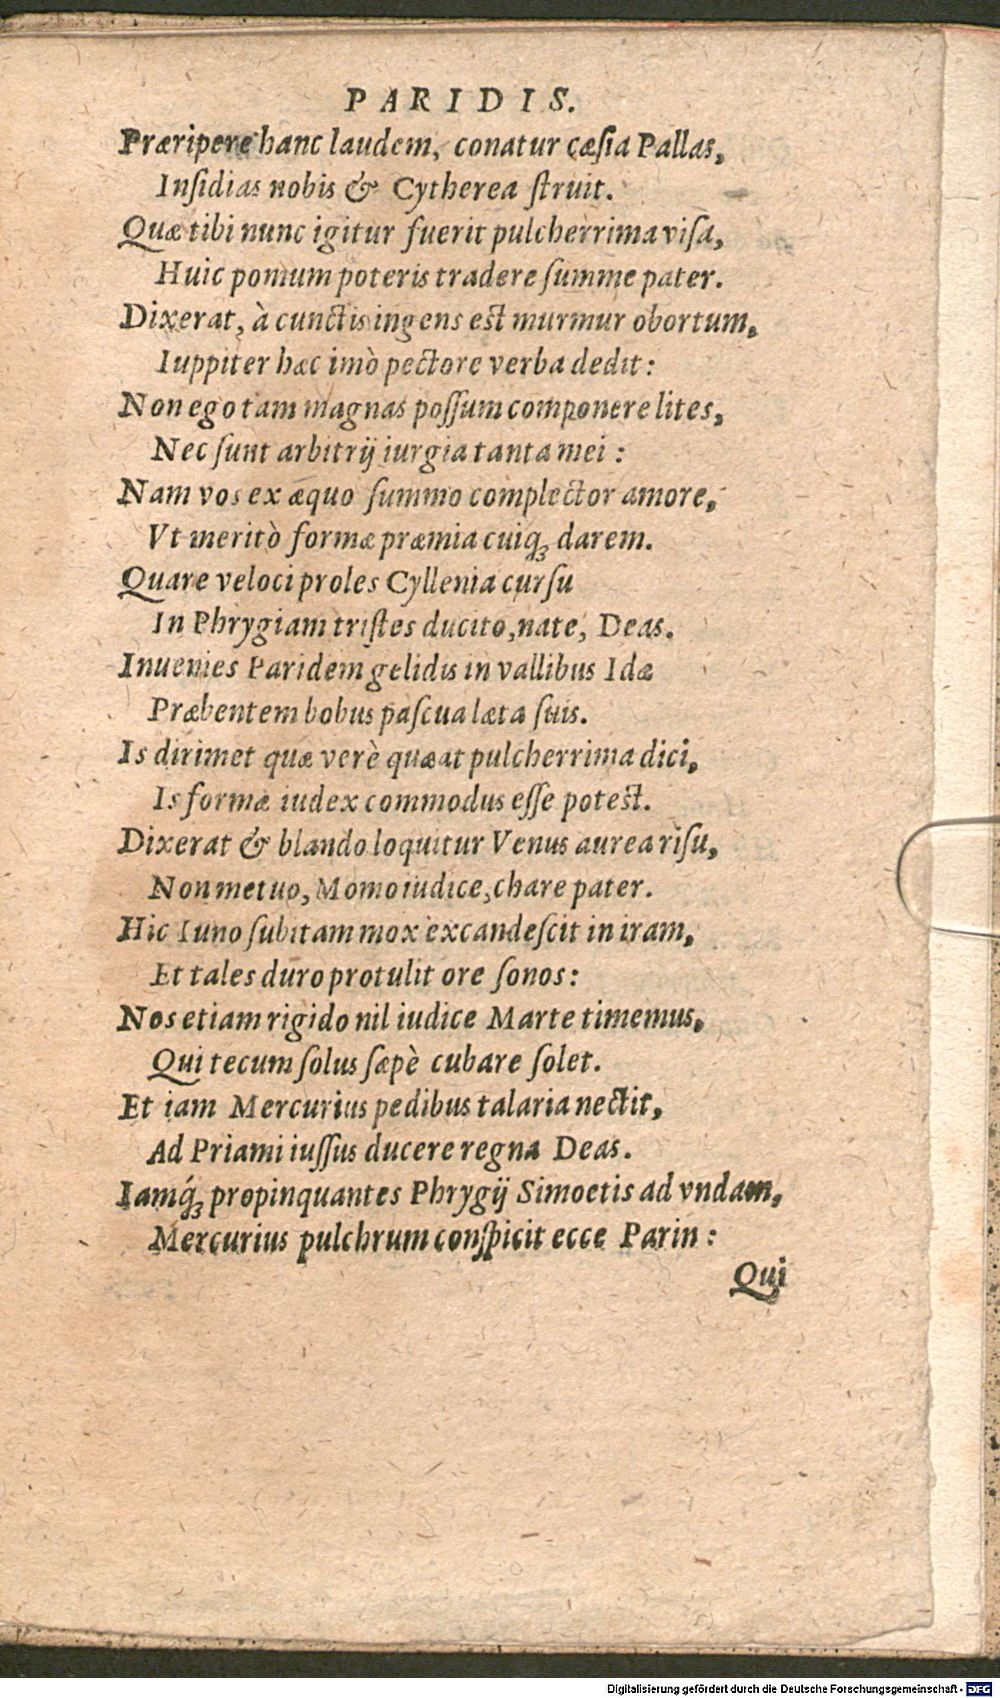 PARIDIS.
Præripere hanc laudem, conatur cæſia Pallas,
Inſidias nobis & Cytherea ſtruit.
Quæ tibi nunc igitur fuerit pulcherrima viſa,
Huic pomum poteris tradere ſumme pater.
Dixerat, à cunctis ingens est murmur obortum,
Iuppiter hæc imò pectore verba dedit:
Non ego tam magnas poſſum componere lites,
Nec ſunt arbitrij iurgia tanta mei:
Nam vos ex æquo ſummo complector amore,
Vt meritò formæ præmia cuiqꝫ darem.
Quare veloci proles Cyllenia curſu
In Phrygiam triſtes ducito, nate, Deas.
Inuenies Paridem gelidis in vallibus Idæ
Præbentem bobus paſcua læta ſuis.
Is dirimet quæ verè quæat pulcherrima dici,
Is formæ iudex commodus eſſe potest.
Dixerat & blando loquitur Venus aurea riſu,
Non metuo, Momo iudice, chare pater.
Hic Iuno ſubitam mox excandeſcit in iram,
Et tales duro protulit ore ſonos:
Nos etiam rigido nil iudice Marte timemus,
Qui tecum ſolus ſæpè cubare ſolet.
Et iam Mercurius pedibus talaria nectit,
Ad Priami iuſſus ducere regna Deas.
Iamq́ꝫ propinquantes Phrygij Simoetis ad vndam,
Mercurius pulchrum conſpicit ecce Parin:
Qui
Digitalisierung gefördert durch die Deutsche Forschungsgemeinschaft - DFG